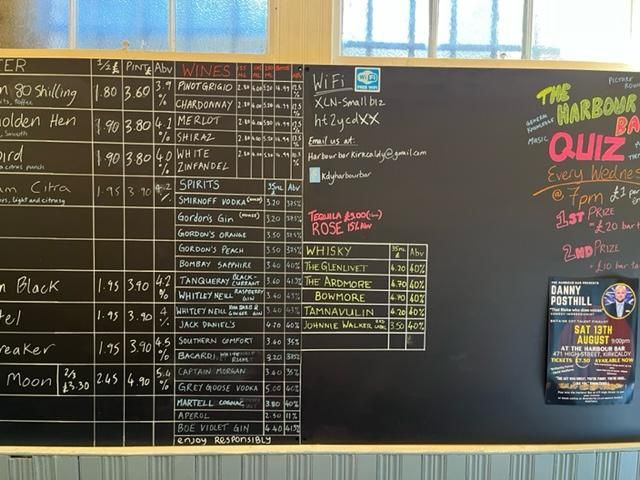 TER 1/2 £ PINT £ ABV
n 80 Shilling 1.80 3.60 3.9 %
Golden Hen 1.90 3.80 4.1 %
Smooth
bird 1.90 3.80 4.0 %
a citrus punch
am Citra 1.95 3.90 4.2 %
light and citrusy
n Black 1.95 3.90 4.2 %
tel 1.95 3.90 4 %
reaker 1.95 3.90 4.5 %
Moon 2/3 £3.30 2.45 4.90 5.4 %
WINES
PINOT GRIGIO
CHARDONNAY
MERLOT
SHIRAZ
WHITE
ZINFANDEL
SPIRITS 35ML ABV
SMIRNOFF VODKA 3.20
Gordon's Gin 3.20
GORDON'S ORANGE 3.50
GORDON'S PEACH 3.50
BOMBAY SAPPHIRE 3.40 40%
TANQUERAY BLACK-CURRANT 3.60
WHITLEY NEILL RASPBERRY GIN 3.40
WHITLEY NEILL RHUBARB & GINGER GIN 3.40
JACK DANIEL'S 4.20 40%
SOUTHERN COMFORT 3.40 35%
BACARDI 3.20
CAPTAIN MORGAN 3.40 35%
GREY GOOSE VODKA 5.00 40%
MARTELL COGNAC 3.80 40%
APEROL 2.50 11%
BOE VIOLET GIN 4.40
enjoy RESPONSIBLY
WiFi
WiFi
FREE WIFI
XLN-Small biz
ht2ycdXX
Email us at:
Harbourbarkirkcaldy@gmail.com
kdyharbourbar
TEQUILA £3.00
ROSE 15% ABV
WHISKY 35ML ABV
THE GLENLIVET 4.20 40%
THE ARDMORE 4.70 40%
BOWMORE 4.70 40%
TAMNAVULIN 4.20 40%
JOHNNIE WALKER 3.50 40%
PICTURE ROUN
THE
HARBOUR
BA
GENERAL
KNOWLEDGE
MUSIC
QUIZ
Every Wednes
@ 7pm £1 per
1ST PRIZE
£20 bar t
2ND PRIZE
£10 bar ta
THE HARBOUR BAR PRESENTS
DANNY
POSTHILL
SAT 13TH
AUGUST 9:00pm
AT THE HARBOUR BAR
471 HIGH STREET, KIRKCALDY
TICKETS £7.50 AVAILABLE NOW